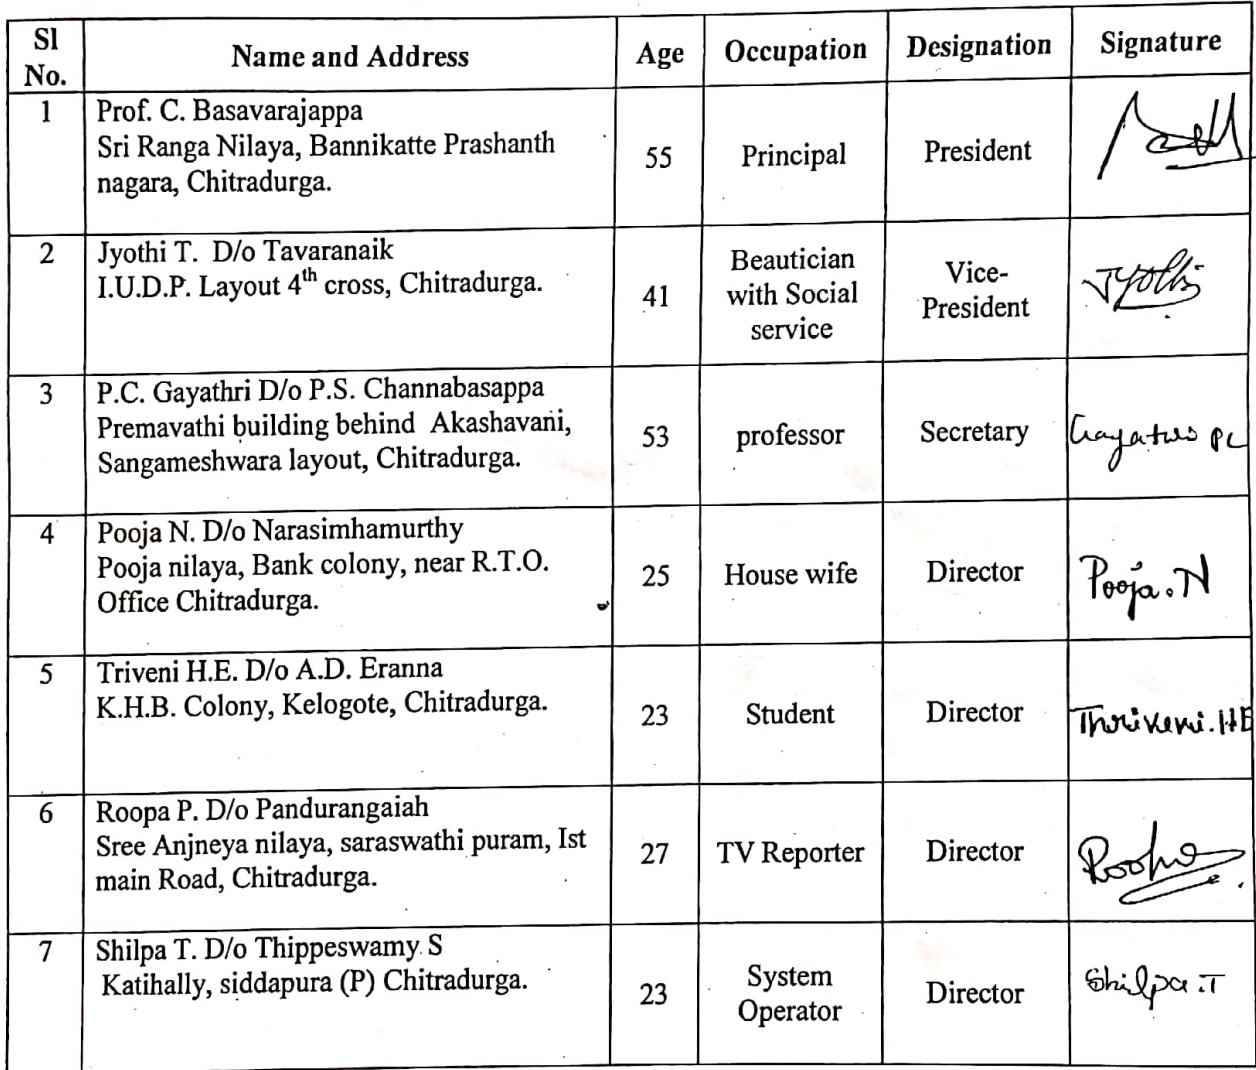 Sl No. Name and Address Age Occupation Designation Signature
1 Prof. C. Basavarajappa
Sri Ranga Nilaya, Bannikatte Prashanth
nagara, Chitradurga.
55 Principal President
2 Jyothi T. D/o Tavaranaik
I.U.D.P. Layout 4th cross, Chitradurga.
41
Beautician
with Social
service
Vice-
President
Jyothi
3 P.C. Gayathri D/o P.S. Channabasappa
Premavathi building behind Akashavani,
Sangameshwara layout, Chitradurga.
53 professor Secretary Gayatri PC
4 Pooja N. D/o Narasimhamurthy
Pooja nilaya, Bank colony, near R.T.O.
Office Chitradurga.
25 House wife Director Pooja.N
5 Triveni H.E. D/o A.D. Eranna
K.H.B. Colony, Kelogote, Chitradurga.
23 Student Director Thriveni.HE
6 Roopa P. D/o Pandurangaiah
Sree Anjneya nilaya, saraswathi puram, Ist
main Road, Chitradurga.
27 TV Reporter Director Roopa
7 Shilpa T. D/o Thippeswamy S
Katihally, siddapura (P) Chitradurga.
23
System
Operator
Director Shilpa.T